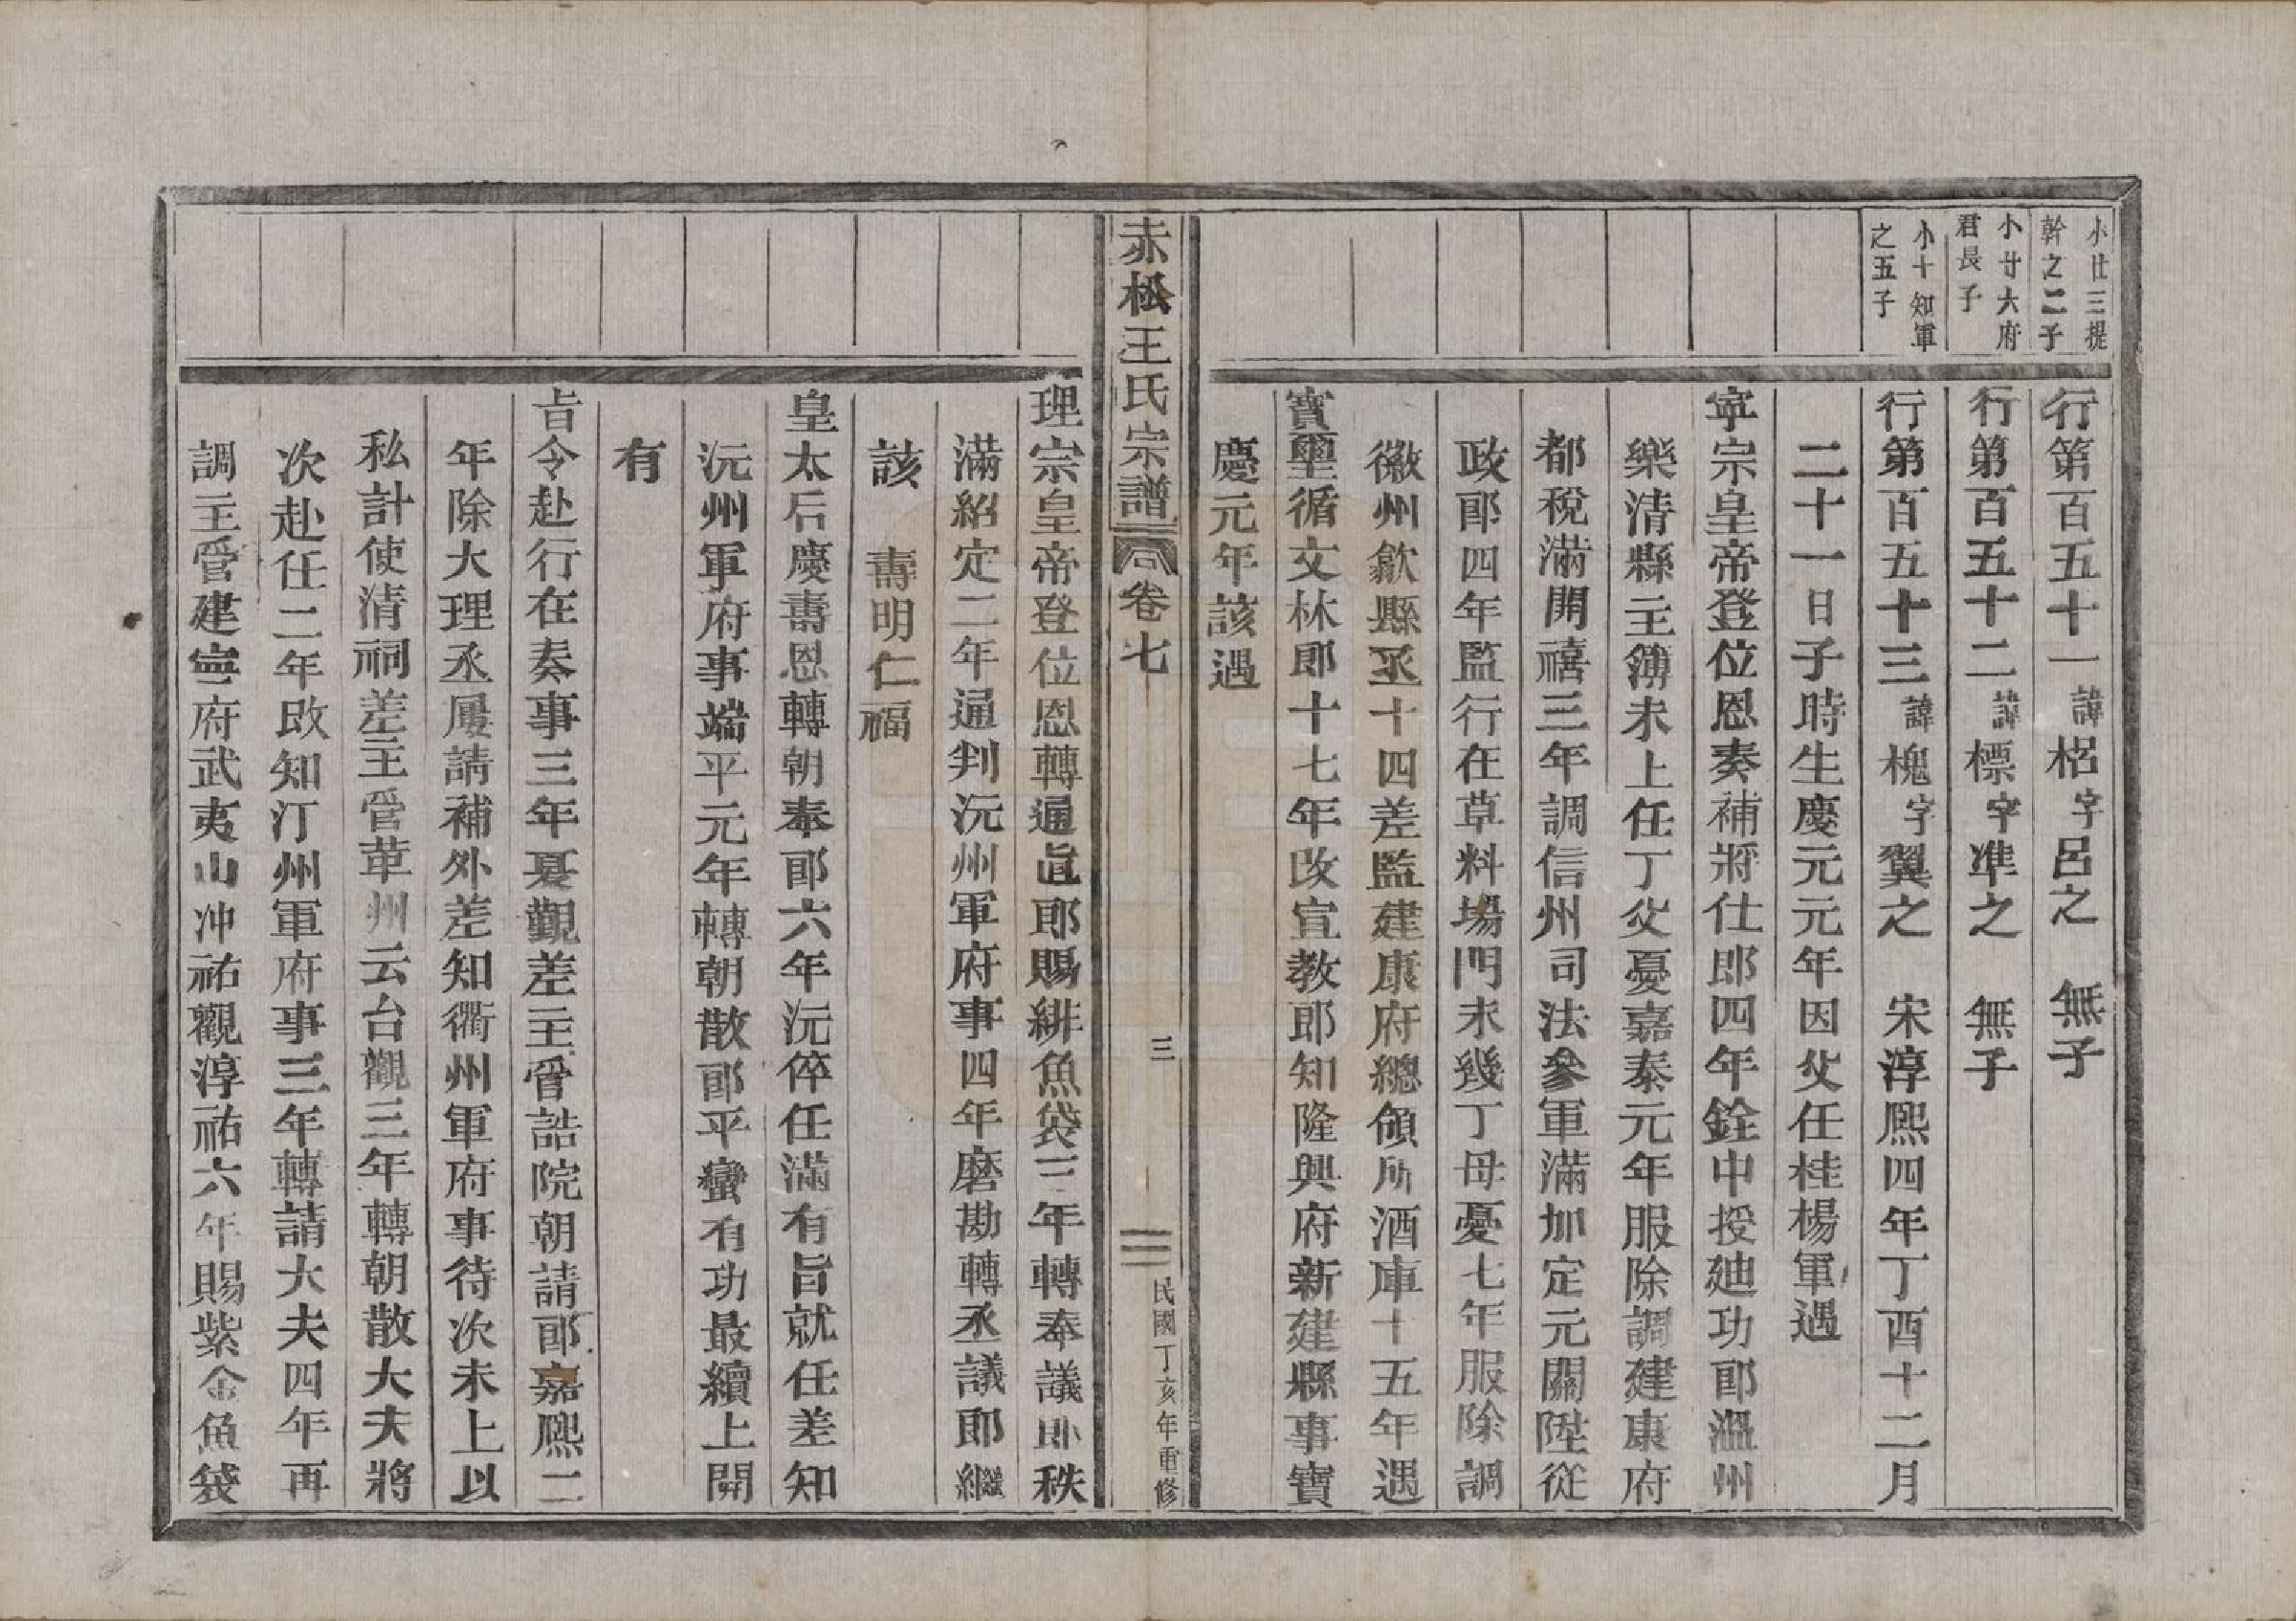 小廿三提
幹之二子
行第百五十一諱梠字呂之　無子
小廿六府
君長子
行第百五十二諱標字準之　無子
小十知軍
之五子
行第百五十三諱槐字翼之　宋淳熙四年丁酉十二月
二十一日子時生慶元元年因父任桂楊軍遇
寧宗皇帝登位恩奏補將仕郎四年銓中授廸功郎溫州
樂清縣主簿未上任丁父憂嘉泰元年服除調建康府
都稅滿開禧三年調信州司法參軍滿加定元關陞從
政郎四年監行在草料場門未幾丁母憂七年服除調
徽州歙縣丞十四差監建康府總領所酒庫十五年遇
寳璽循文林郎十七年改宣教郎知隆興府新建縣事寶
慶元年該遇
赤松王氏宗譜
卷七
三
民國丁亥年重修
理宗皇帝登位恩轉通直郎賜緋魚袋三年轉奉議郎秩
滿紹定二年通判沅州軍府事四年磨勘轉丞議郎繼
該　壽明仁福
皇太后慶壽恩轉朝奉郎六年沅倅任滿有旨就任差知
沅州軍府事端平元年轉朝散郎平蠻有功最續上開
有
旨令赴行在奏事三年夏覲差主管誥院朝請郎嘉熙二
年除大理丞屢請補外差知衢州軍府事待次未上以
私計使清祠差主管華州云台觀三年轉朝散大夫將
次赴任二年改知汀州軍府事三年轉請大夫四年再
調主管建寧府武夷山冲祐觀淳祐六年賜紫金魚袋